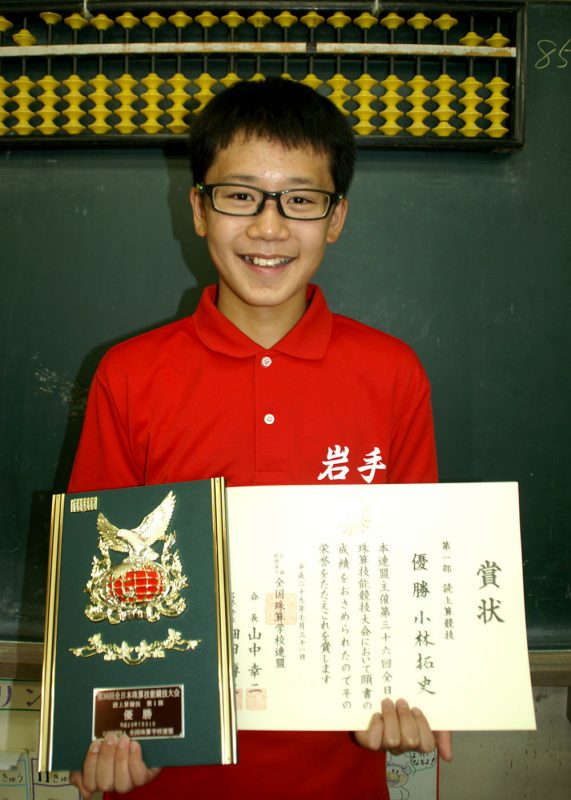 85
岩手
賞状
第一部 読上算競技
優勝 小林拓史
本連盟主催第三十六回全日
珠算技能競技大会において頭書の
成績をおさめられたのでその
栄誉をたたえこれを賞します
平成二十九年七月三十一日
全国珠算学校連盟
会長 山中幸二
第36回全日本珠算技能競技大会
読上算競技 第1部
優勝
平成29年7月31日
全国珠算学校連盟
リン
きゅう
11
なるよ!